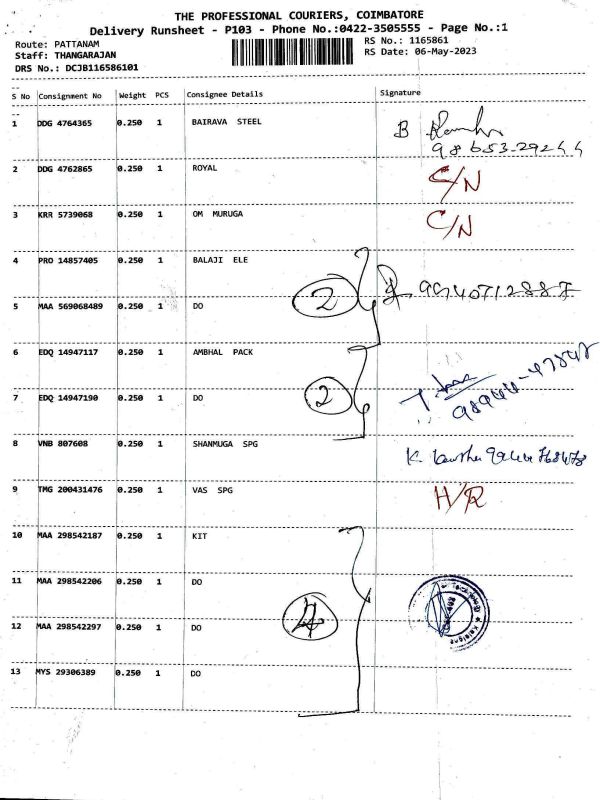 THE PROFESSIONAL COURIERS, COIMBATORE
Delivery Runsheet - P103 - Phone No.:0422-3505555 - Page No.:1
Route: PATTANAM
RS No.: 1165861
Staff: THANGARAJAN
RS Date: 06-May-2023
DRS No.: DCJB116586101
S No Consignment No Weight PCS Consignee Details Signature
1 DDG 4764365 0.250 1 BAIRAVA STEEL B
2 DDG 4762865 0.250 1 ROYAL C/N
3 KRR 5739068 0.250 1 OM MURUGA C/N
4 PRO 14857405 0.250 1 BALAJI ELE
2
5 MAA 569068489 0.250 1 DO
6 EDQ 14947117 0.250 1 AMBHAL PACK
7 EDQ 14947190 0.250 1 DO 2
8 VNB 807608 0.250 1 SHANMUGA SPG K.
9 TMG 200431476 0.250 1 VAS SPG H/R
10 MAA 298542187 0.250 1 KIT
11 MAA 298542206 0.250 1 DO
4
12 MAA 298542297 0.250 1 DO
13 MYS 29306389 0.250 1 DO